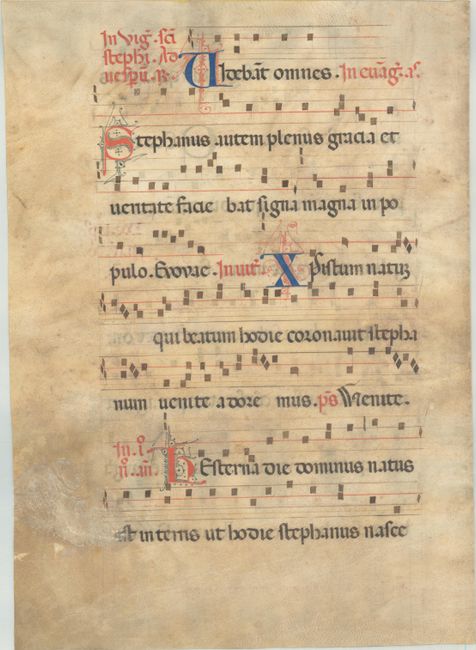 In vig̃. sc̃i
stephi. Ad
uesp̃u. R.
Uidebãt omnes. In euãg̃. a.
Stephanus autem plenus gracia et
ueritate facie bat signa magna in po
pulo. Evovae. Inuit̃. Xp̃istum natuʒ
qui beatum hodie coronauit stepha
num uenite adore mus. p̃s Venite.
In. i.
n̊. añ. Hesterna die dominus natus
est in terris ut hodie stephanus nasce